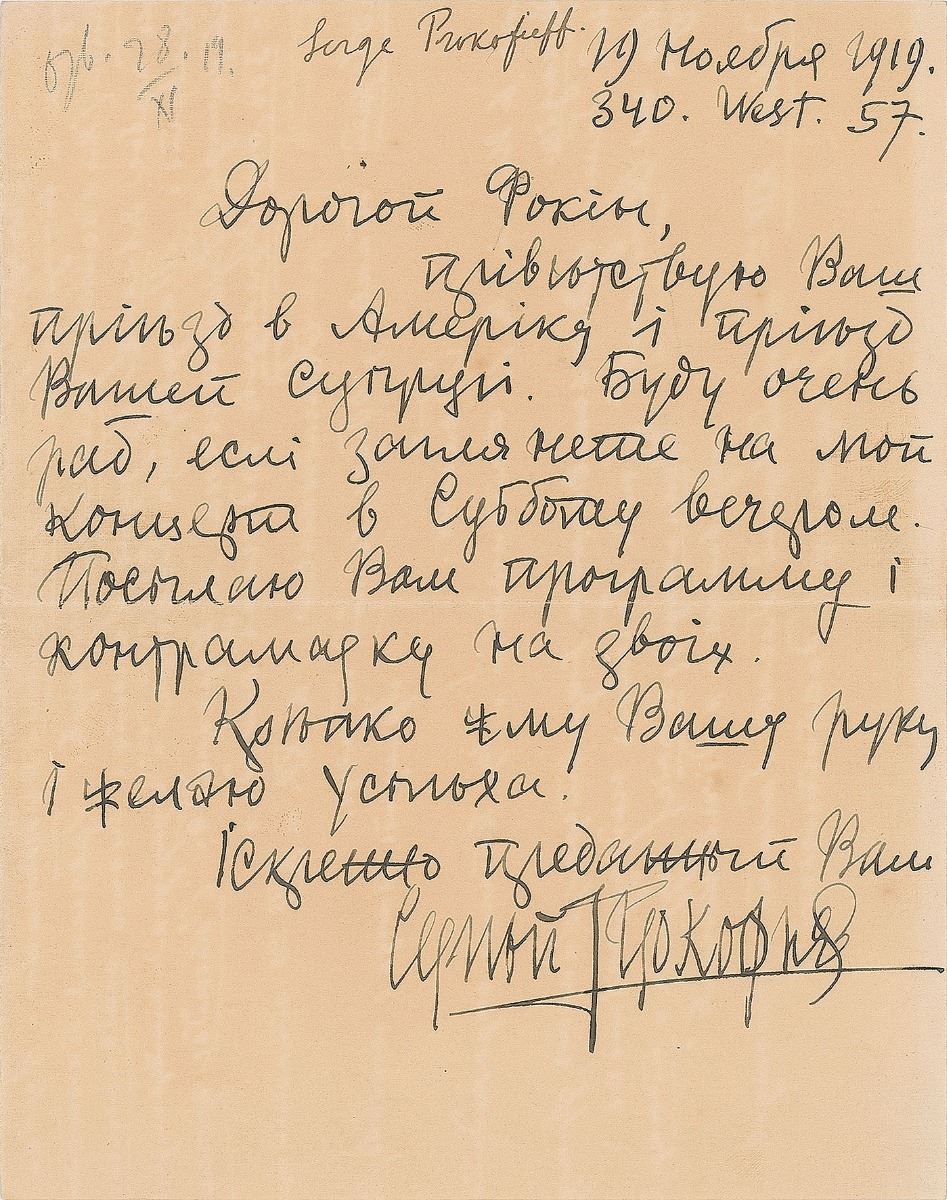 отв. 28/XI.19. Serge Prokofieff. 19 Ноября 1919.
340. West. 57.
Дорогой Фокін,
прівѣтствую Ваш
пріѣзд в Амеріку і пріѣзд
Вашей супругі. Буду очень
рад, еслі заглянете на мой
концерт в Субботу вечером.
Посылаю Вам программу і
контрамарку на двоіх.
Крѣпко жму Вашу руку
і желаю успѣха.
Іскренно преданный Вам
Сергѣй Прокофьев